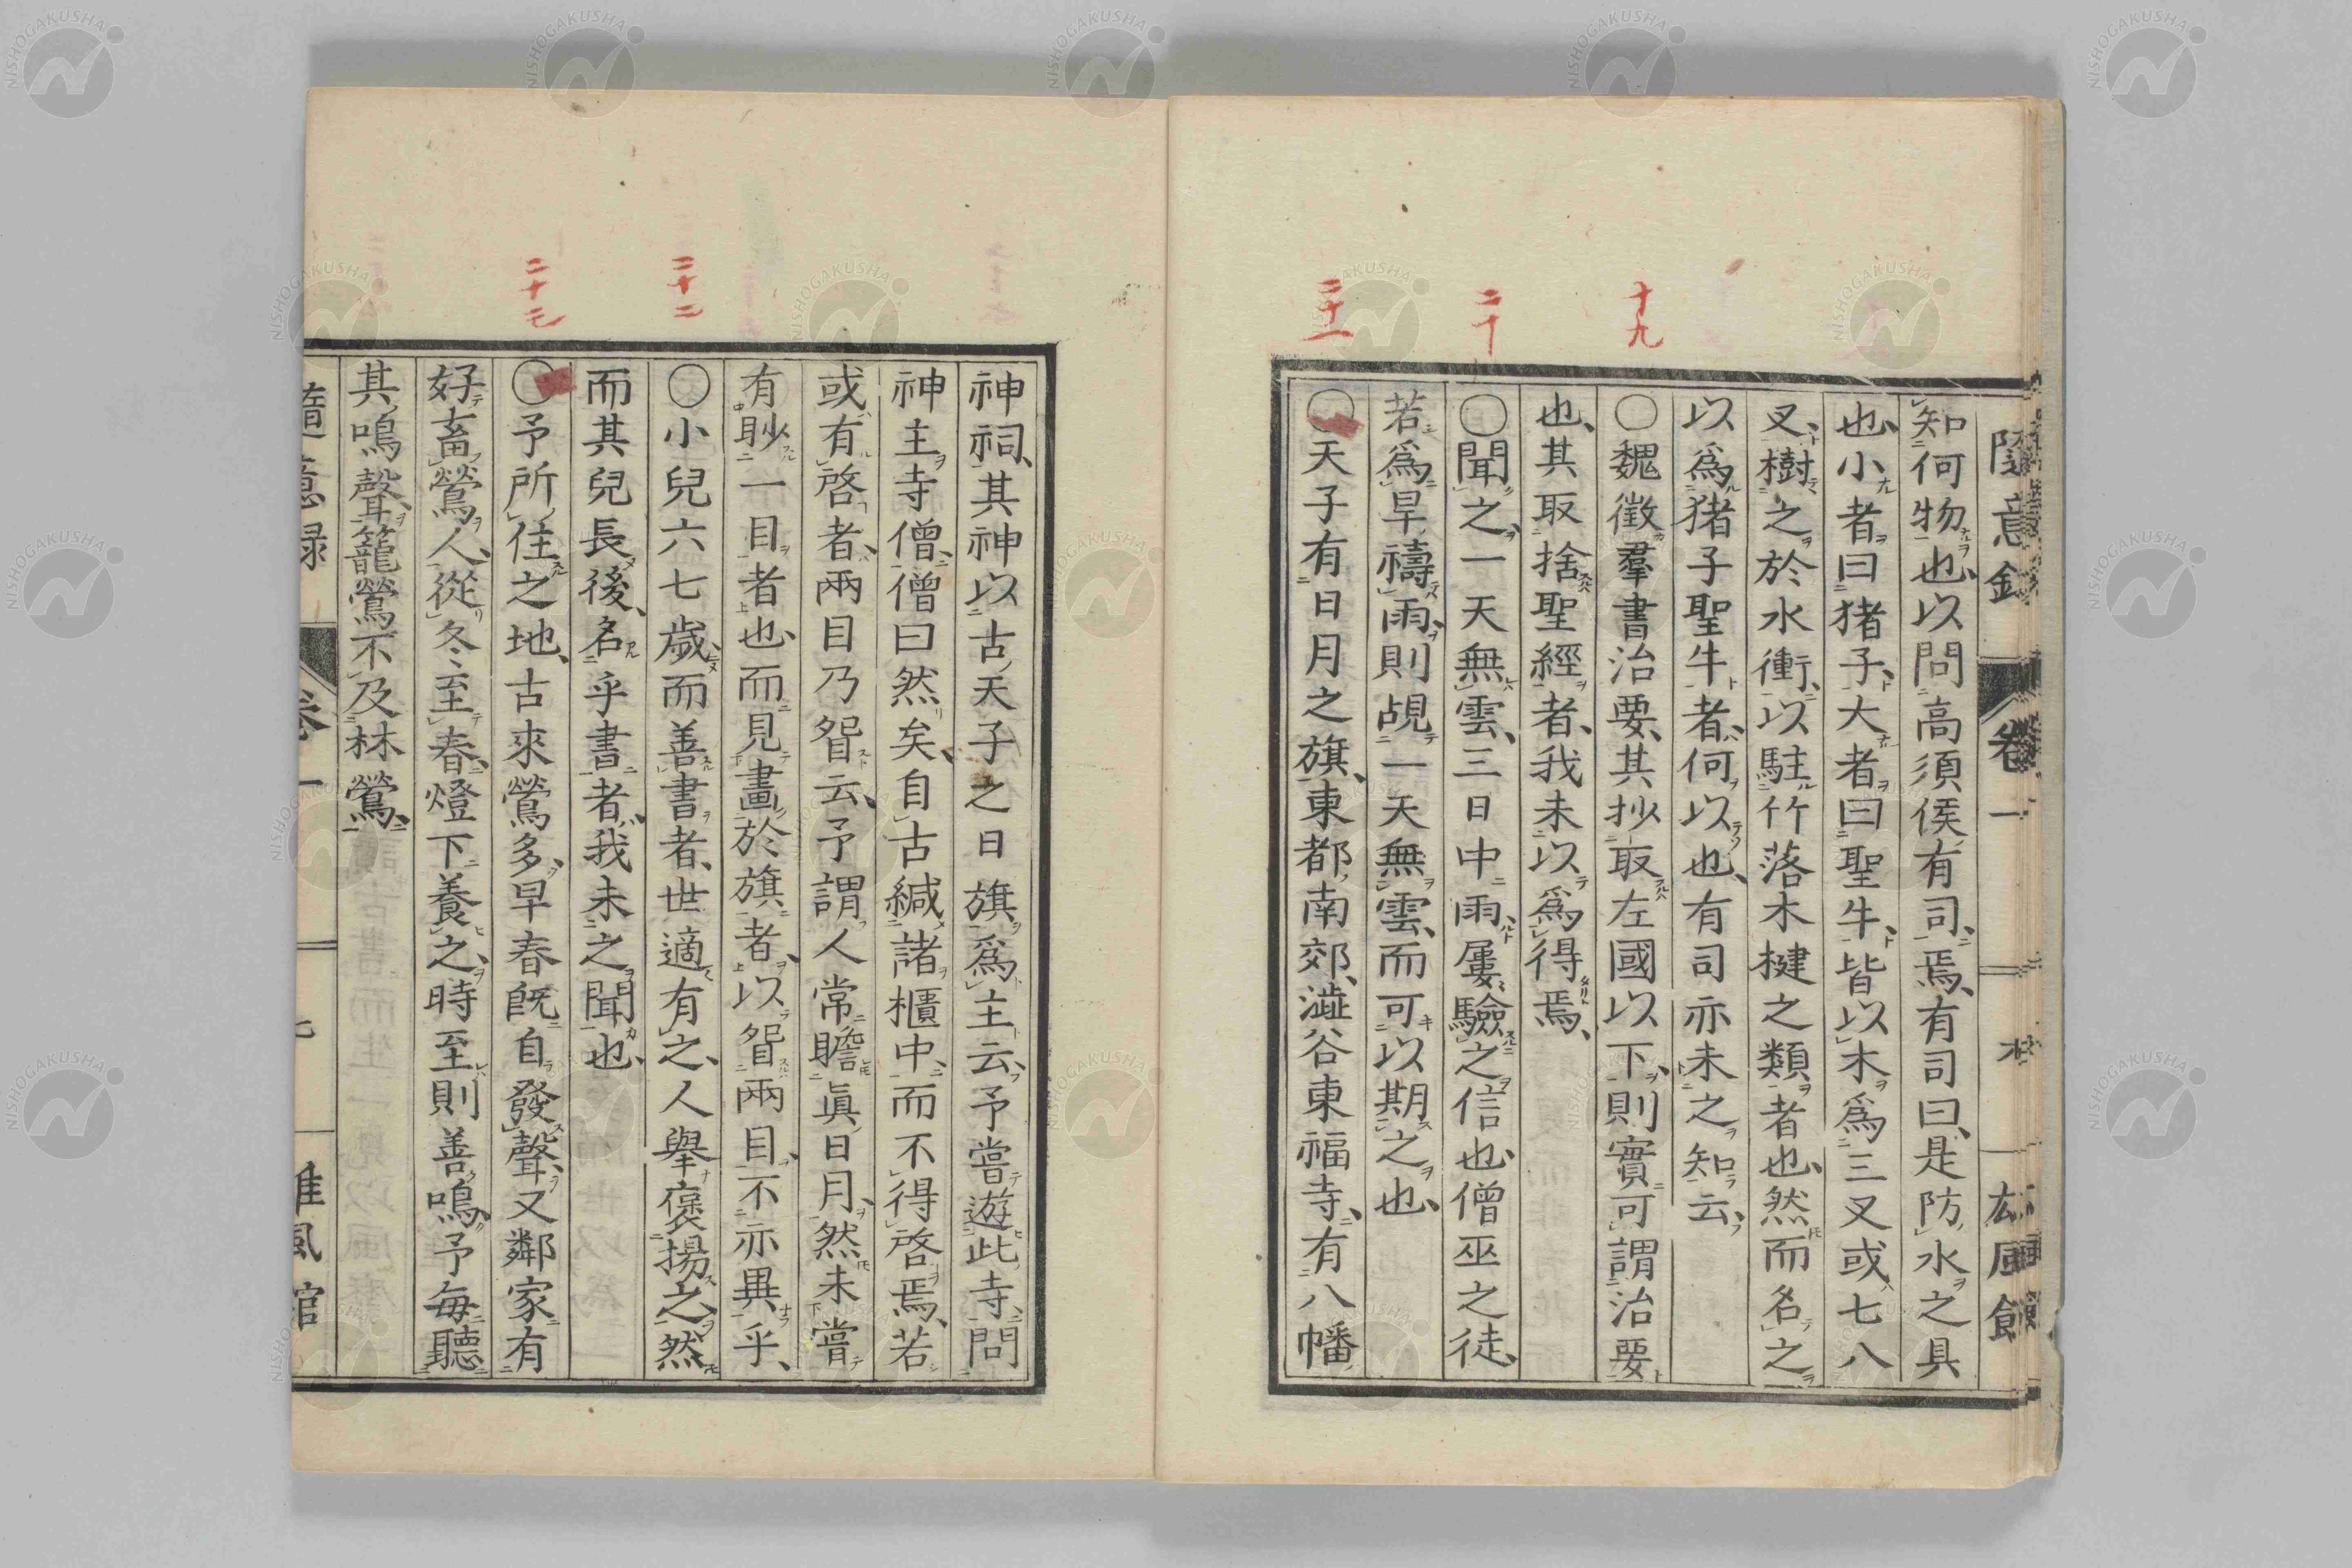 十九
二十
二十一
知何物也、以問高須侯有司焉、有司曰、是防水之具
也、小者曰猪子、大者曰聖牛、皆以木爲三叉或七八
叉、樹之於水衝、以駐竹落木楗之類者也、然而名之
以爲猪子聖牛者、何以也、有司亦未之知云、
〇魏徵羣書治要、其抄取左國以下、則實可謂治要
也、其取捨聖經者、我未以爲得焉、
〇聞之、一天無雲、三日中雨、屢驗之信也、僧巫之徒、
若爲旱禱雨、則覘一天無雲、而可以期之也、
〇天子有日月之旗、東都南郊、澁谷東福寺、有八幡
二十二
二十三
神祠、其神以古天子之日旗爲主云、予嘗遊此寺、問
神主寺僧、僧曰然矣、自古緘諸櫃中、而不得啓焉、若
或有啓者、兩目乃眢云、予謂人常瞻眞日月、然未嘗
有眇一目者也、而見畫於旗者、以眢兩目、不亦異乎、
〇小兒六七歲而善書者、世適有之、人舉褒揚之、然
而其兒長後、名乎書者、我未之聞也、
〇予所住之地、古來鶯多、早春旣自發聲、又鄰家有
好畜鶯人、從冬至春、燈下養之、時至則善鳴、予每聽
其鳴聲、籠鶯不及林鶯、
隨意錄
卷一
NISHOGAKUSHA